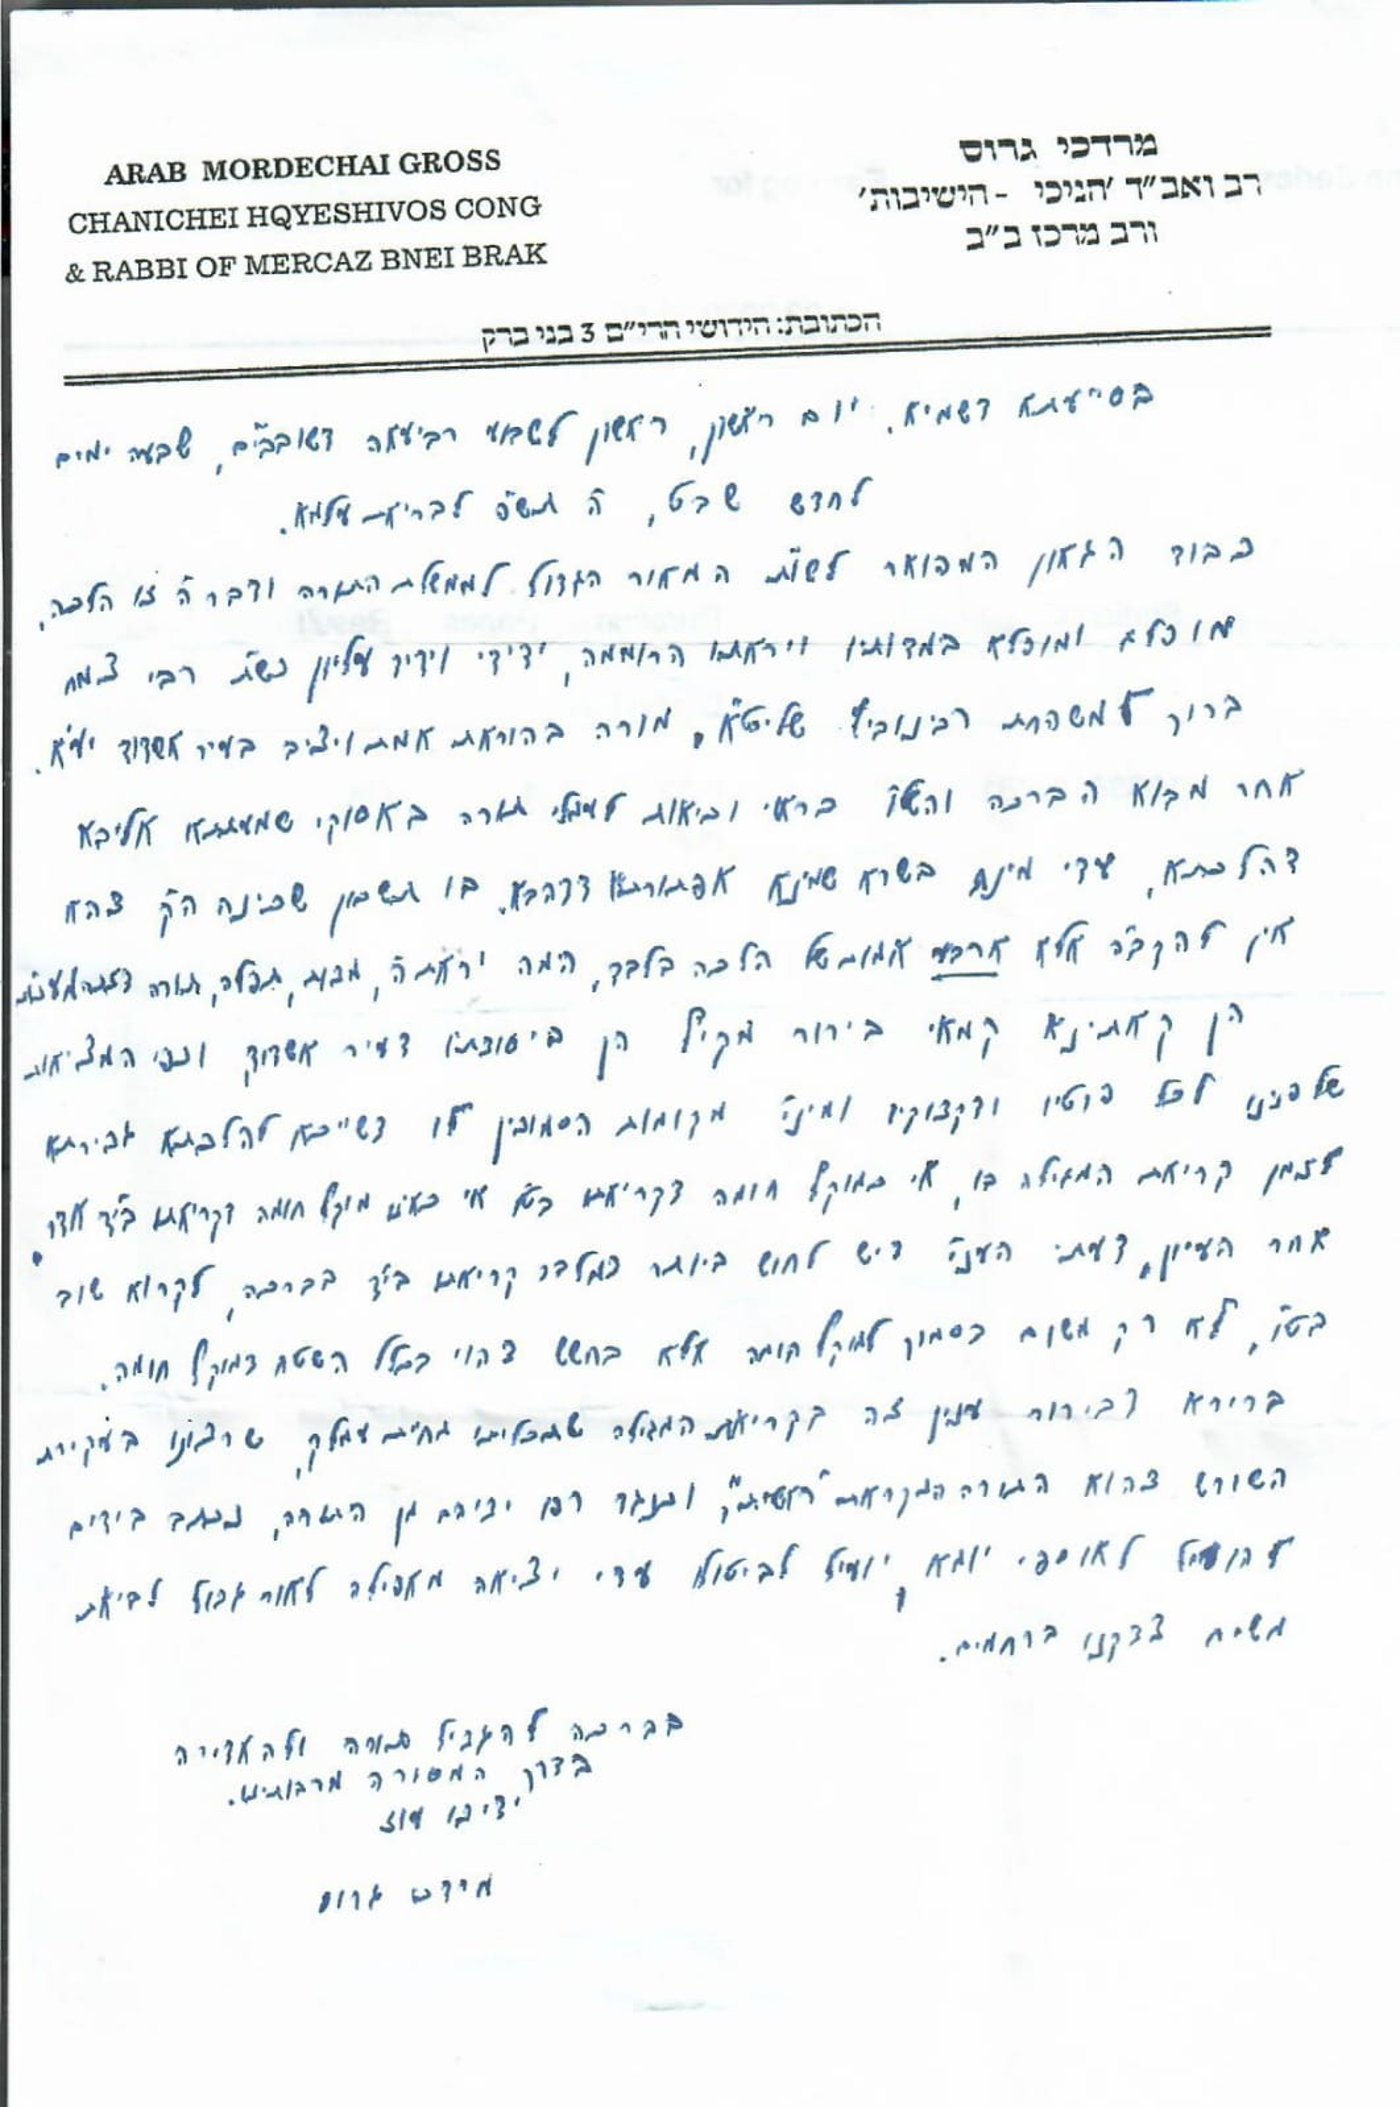 ARAB MORDECHAI GROSS
CHANICHEI HQYESHIVOS CONG
& RABBI OF MERCAZ BNEI BRAK
מרדכי גרוס
רב ואב״ד 'חניכי - הישיבות'
ורב מרכז ב״ב
הכתובת: חידושי הרי״ם 3 בני ברק
בסייעתא דשמיא. יום ראשון, ראשון לשבוע רביעאה דשובבי״ם, שבעה ימים
לחדש שבט, ה' תש״פ לבריאת עלמא.
כבוד הגאון המפואר לשו״ת המאור הגדול לממשלת התורה ודבר ה' זו הלכה,
מוכלל ומופלא במדותיו ויראתו הרוממה, ידידי וידיד עליון כש״ת רבי צמח
ברוך למשפחת רבינוביץ שליט״א, מורה בהוראת אמת ויציב בעיר אשדוד יע״א.
אחר מבוא הברכה והשלו' כראוי וכיאות לעמלי תורה באסוקי שמעתתא אליבא
דהלכתא, עדי מינה בשרא שמינא אפתורתא דדהבא. בו תשכון שכינה הק' דהא
אין להקב״ה אלא ארבע אמות של הלכה בלבד, המה יראת ה', תפלה, תורה
הן קאתינא קמאי בירור מקיף הן ביסודתו דעיר אשדוד וכפי המציאות
שלפנינו לכל פרטיו ודקדוקיו ומיני' מקומות הסמוכין לו דשייכא להלכתא גבירתא
לזמן קריאת המגילה בו, אי כמוקף חומה דקריאתו בט״ו אי כאינו מוקף חומה דקריאתו בי״ד אדר.
אחר העיון, דעתי העני' דיש לחוש ביותר דמלבד קריאתו בי״ד בברכה, לקרוא שוב
בט״ו, לא רק משום בסמוך למוקף חומה אלא בחשש דהוי בכלל השטח דמוקף חומה.
ברירא דבירור ענין זה בקריאת המגילה שתכליתו מחית עמלק, שרצונו בעקירת
השורש דהוא התורה הנקראת "ראשית", וכנגד רפו ידיהם מן התורה, נכתב בידים
יועיל לביטולו עדי יציאה מאפילה לאור גדול לביאת
משיח צדקנו ברחמים.
בברכה להגדיל תורה ולהאדירה
בדרך המסורה מרבותינו.
ידידו עוז
מרדכי גרוס